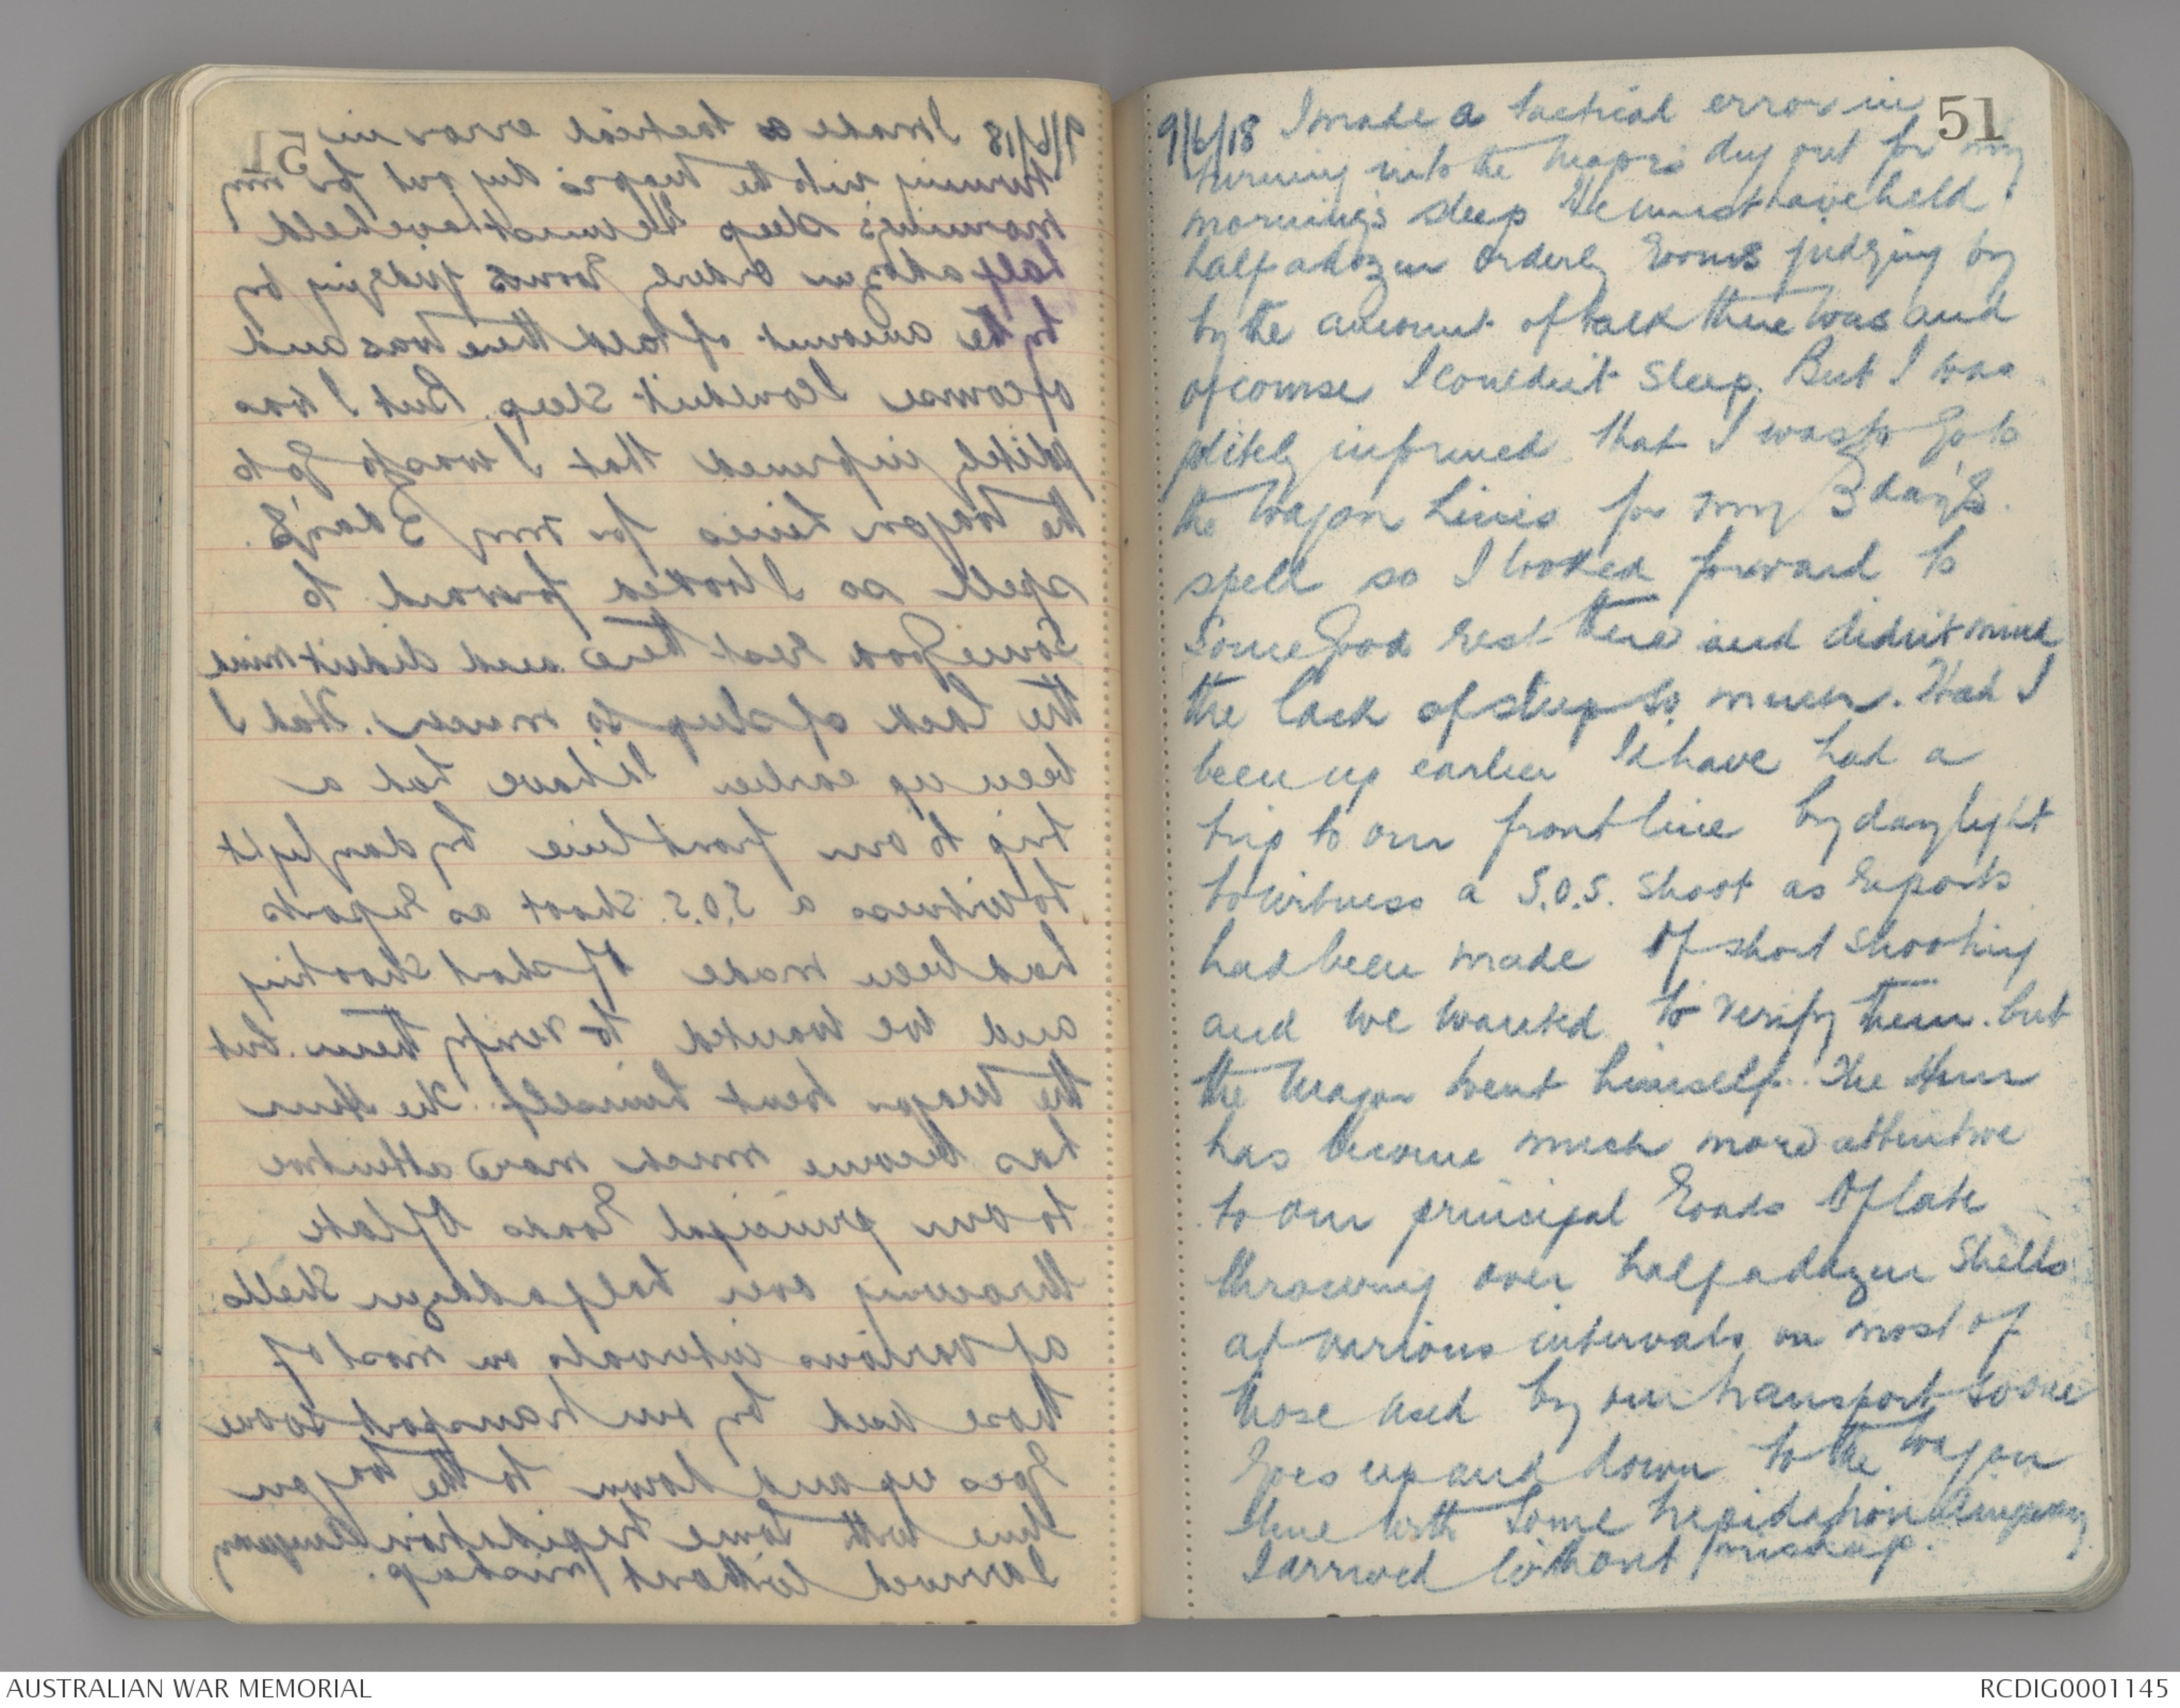 51
9/6/18 I made a tactical error in
turning into the Major's dug out for my
morning's sleep He must have held
half a dozen orderly Rooms judging by
by the amount of talk there was and
of course I couldn't sleep. But I was
politely informed that I was to go to
the Wagon Lines for my 3 day's.
spell so I looked forward to
some good rest there and didn't mind
the lack of sleep so much. Had I
been up earlier I'd have had a
trip to our front line by daylight
to witness a S.O.S. shoot as reports
had been made of short shooting
and we wanted to verify them. but
the Major went himself. The Hun
has become much more attentive
to our principal Roads of late
throwing over half a dozen shells
at various intervals on most of
those used by our transport so one
goes up and down to the wagon
line with some trepidation Anyway
I arrived without mishap.
AUSTRALIAN WAR MEMORIAL
RCDIG0001145